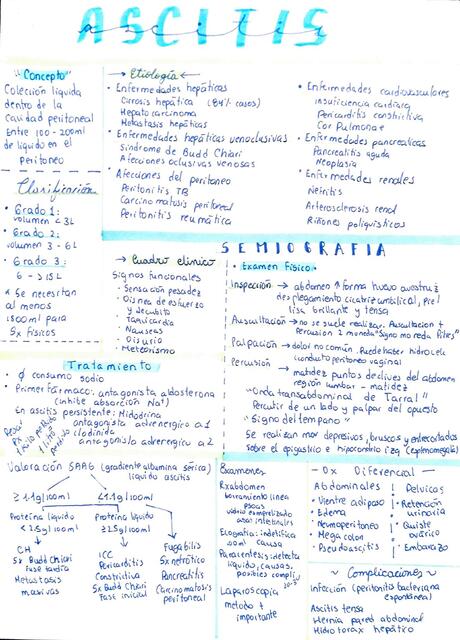 ASCITIS
ascitis
"Concepto"
Colección líquida
dentro de la
cavidad peritoneal
Entre 100-200ml
de líquido en el
Peritoneo
Clasificación
• Grado 1:
volumen < 3L
• Grado 2:
volumen 3 - 6L
• Grado 3:
6 - >15L
* Se necesitan
al menos
1500ml para
Sx físicos
→ Etiología ←
• Enfermedades hepáticas
Cirrosis hepática (84% casos)
Hepatocarcinoma
Metastasis hepáticas
• Enfermedades hepáticas venoclusivas
Síndrome de Budd Chiari
Afecciones oclusivas venosas
• Afecciones del peritoneo
Peritonitis TB
Carcinomatosis peritoneal
Peritonitis reumática
• Enfermedades cardiovasculares
Insuficiencia cardíaca
Pericarditis constrictiva
Cor Pulmonare
• Enfermedades pancreaticas
Pancreatitis aguda
Neoplasia
• Enfermedades renales
Nefritis
Arterosclerosis renal
Riñones poliquísticos
SEMIOGRAFIA
→ Cuadro clínico
Signos funcionales
• Sensación pesadez
• Disnea de esfuerzo
y decubito
• Taquicardia
• Nauseas
• Disuria
• Meteorismo
• Examen Físico
Inspección → abdomen ↑ forma huevo avestruz
desplegamiento cicatriz umbilical, piel
lisa brillante y tensa
Auscultación → no se suele realizar. Auscultacion +
Percusion 2 moneda "Signo moneda Pitres"
Palpación → dolor no común. Puede haber hidrocele
conducto peritoneo vaginal
Percusión → matidez puntos declives del abdomen
región lumbar - matidez
"Onda transabdominal de Tarral"
Percutir de un lado y palpar del opuesto
"Signo del tempano"
Se realizan mov depresivos, bruscos y entrecortados
sobre el epigastrio e hipocondrio izq (esplenomegalia)
Tratamiento
• ∅ consumo sodio
• Primer fármaco: antagonista aldosterona
(inhibe absorción Na+)
En ascitis persistente: Midodrina
antagonista adrenergico α1
clonidina
antagonista adrenergico α2
Valoración SAAG (gradiente albumina sérica)
líquido ascitis
≥ 1.1g/100ml
< 1.1g/100ml
Proteína líquido
< 2.5g/100ml
Proteína líquido
≥ 2.5g/100ml
CH
Sx Budd Chiari
fase tardía
Metastasis
masivas
ICC
Pericarditis
Constrictiva
Sx Budd Chiari
Fase inicial
Fugabilis
Sx nefrótico
Pancreatitis
Carcinomatosis
peritoneal
Examenes
Rx abdomen
borramiento linea
psoas
vidrio esmerilado
asas intestinales
Ecografia: indetifica
50ml causa
Paracentesis: detecta
líquido, causas,
posibles complic
Laparoscopia
metodo +
importante
- Dx Diferencial -
Abdominales
• Vientre adiposo
• Edema
• Neumoperitoneo
• Mega colon
• Pseudoascitis
Pelvicos
• Retención
urinaria
• Quiste
ovárico
• Embarazo
~ Complicaciones ~
Infección (peritonitis bacteriana
espontánea)
Ascitis tensa
Hernia pared abdominal
Hidrotorax hepático